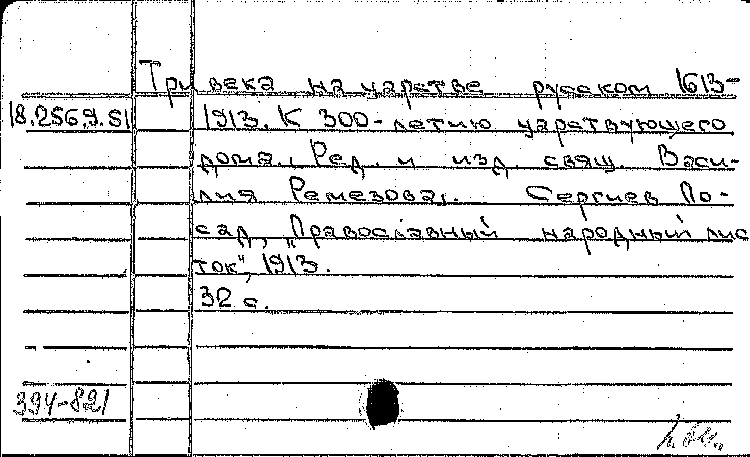 Три века на царстве русском 1613-
18.256.9.81 1913. К 300-летию царствующего
дома. Ред. и изд. свящ. Васи-
лия Ремезова. Сергиев По-
сад, „Православный народный лис
ток", 1913.
32 с.
394-821